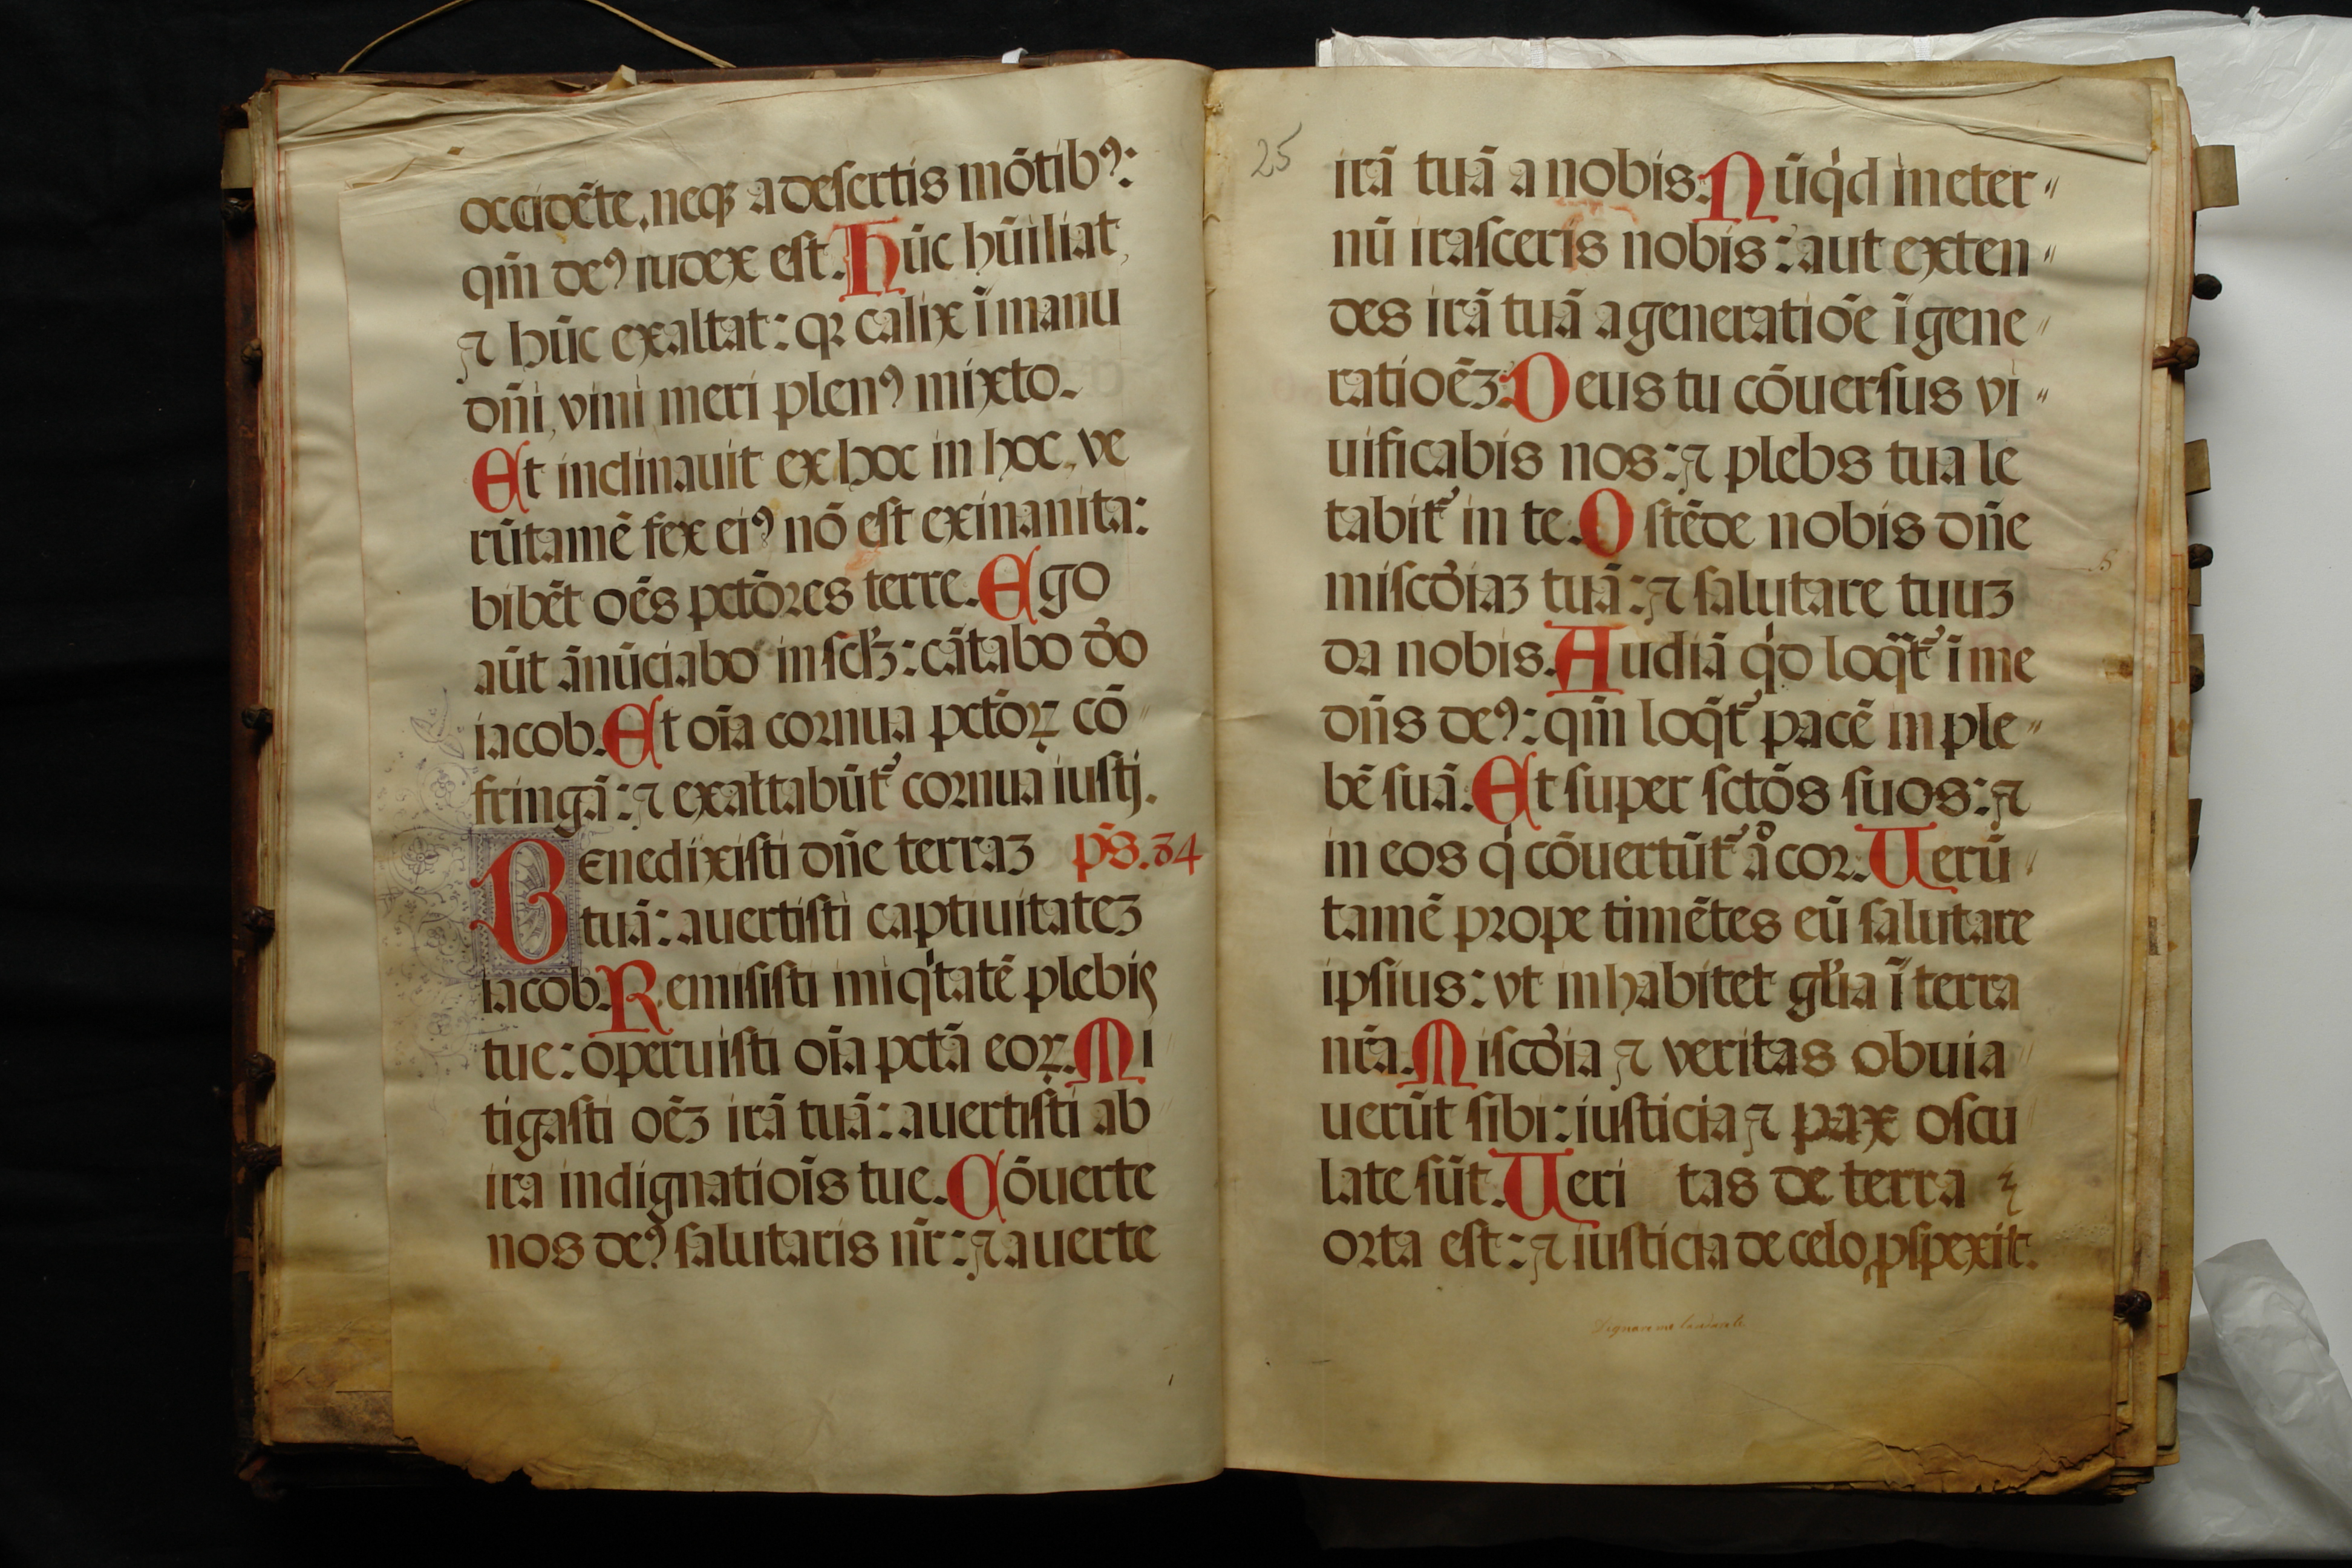 occidēte, neqꝫ a desertis mōtibꝰ:
qm̄ deꝰ iudex est. Hūc hūiliat,
⁊ hūc exaltat: qꝛ calix ī manu
dn̄i, vini meri plenꝰ mixto.
Et inclinauit ex hoc in hoc, ve
rūtamē fex eiꝰ nō est exinanita:
bibēt oēs pctōres terre. Ego
aūt ānūciabo in sclꝫ: cātabo dō
iacob. Et oīa cornua pctōꝝ cō
fringā: ⁊ exaltabūt᷑ cornua iustj.
Benedixisti dn̄e terraꝫ p̄s. 84
tuā: auertisti captiuitateꝫ
iacob. Remisisti iniqͥtatē plebis
tue: operuisti oīa pctā eoꝝ. Mi
tigasti oēꝫ irā tuā: auertisti ab
ira indignatiōis tue. Cōuerte
nos deꝰ salutaris nr̄: ⁊ auerte
25
irā tuā a nobis. Nūqͥd in eter〃
nū irasceris nobis: aut exten〃
des irā tuā a generatiōe ī gene〃
ratioēꝫ. Deus tu cōuersus vi〃
uificabis nos: ⁊ plebs tua le
tabit᷑ in te. Ostēde nobis dn̄e
miscd̄iaꝫ tuā: ⁊ salutare tuuꝫ
da nobis. Audiā qͥd loqt᷑ ī me
dn̄s deꝰ: qm̄ loqt᷑ pacē in ple〃
bē suā. Et super sctōs suos: ⁊
in eos qͥ cōuertūt᷑ aͦ cor. Uerū
tamē prope timētes eū salutare
ipsius: vt inhabitet gl̄ia ī terra
nr̄a. Miscd̄ia ⁊ veritas obuia
uerūt sibi: iusticia ⁊ pax oscu
late sūt. Ueri tas de terra
orta est: ⁊ iusticia de celo ꝓspexit.
Dignare me laudare te